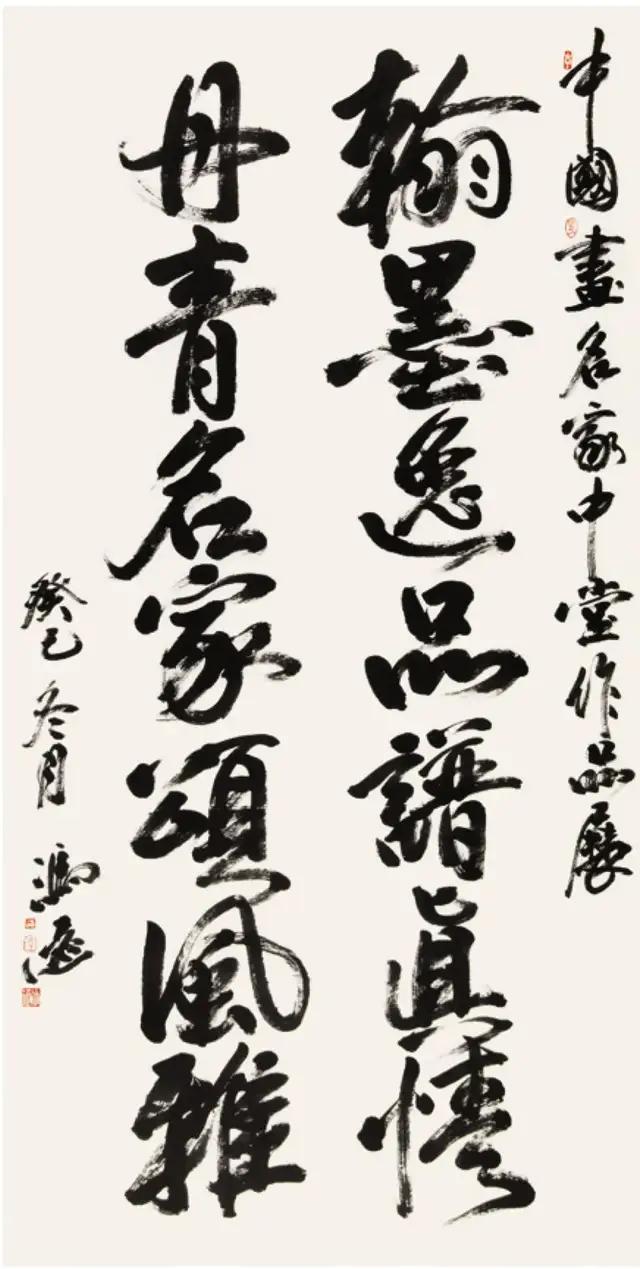 中國畫名家中堂作品展
翰墨逸品譜真情
丹青名家頌風雅
癸巳冬月